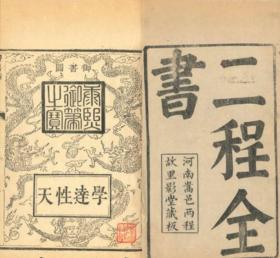 二程全書
河南嵩邑兩程
故里影堂藏板
御書
康熙御筆之寶
學達性天